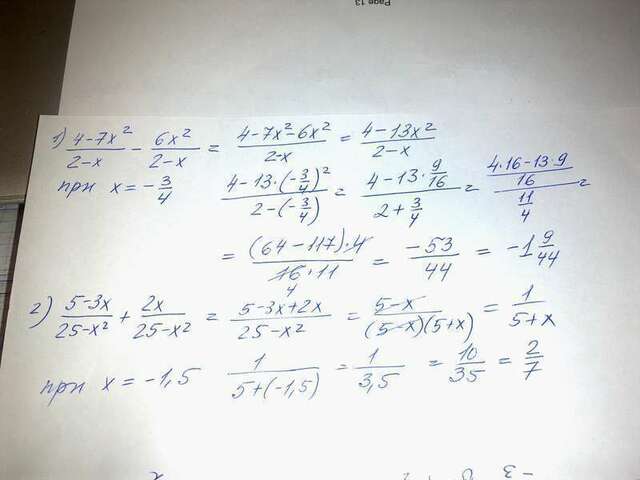 Page 13
1) (4-7x²)/(2-x) - 6x²/(2-x) = (4-7x²-6x²)/(2-x) = (4-13x²)/(2-x)
при x = -3/4 (4-13·(-3/4)²)/(2-(-3/4)) = (4-13·9/16)/(2+3/4) = ((4·16-13·9)/16)/(11/4) =
= ((64-117)·4)/(16·11) = -53/44 = -1 9/44
4
2) (5-3x)/(25-x²) + 2x/(25-x²) = (5-3x+2x)/(25-x²) = (5-x)/((5-x)(5+x)) = 1/(5+x)
при x = -1,5 1/(5+(-1,5)) = 1/3,5 = 10/35 = 2/7